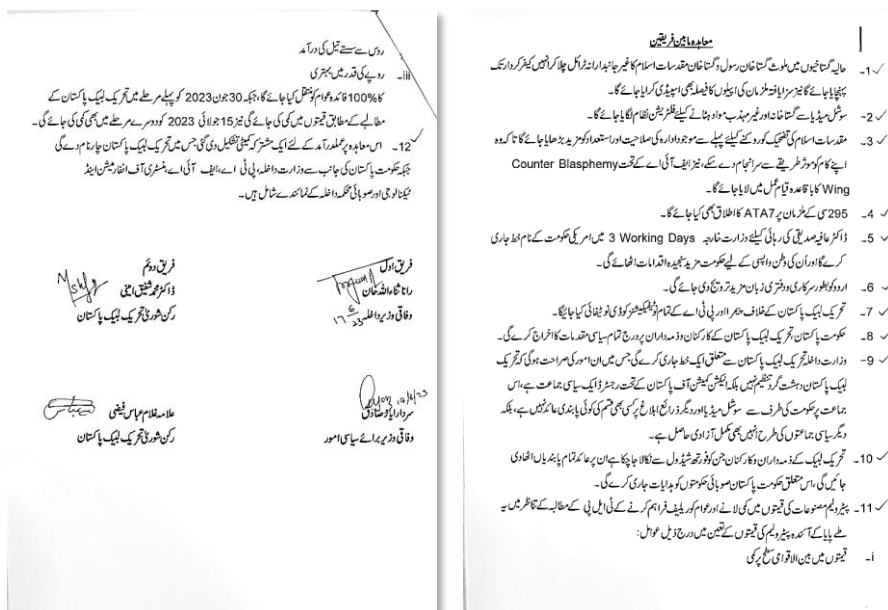 معاہدہ مابین فریقین
1۔ حالیہ گستاخیوں میں ملوث گستاخانِ رسول و گستاخان مقدسات اسلام کا غیر جانبدارانہ ٹرائل چلا کر انہیں کیفر کردار تک
پہنچایا جائے گا نیز سزا یافتہ ملزمان کی اپیلوں کا فیصلہ بھی اسپیڈی کرایا جائے گا۔
2۔ سوشل میڈیا سے گستاخانہ اور غیر مہذب مواد ہٹانے کیلئے فلٹریشن نظام لگایا جائے گا۔
3۔ مقدسات اسلام کی تضحیک کو روکنے کیلئے پہلے سے موجود ادارہ کی صلاحیت اور استعداد کو مزید بڑھایا جائے گا تا کہ وہ
اپنے کام کو موثر طریقے سے سرانجام دے سکے، نیز ایف آئی اے کے تحت Counter Blasphemy
Wing کا با قاعدہ قیام عمل میں لایا جائے گا۔
4۔ 295سی کے ملزمان پر ATA7 کا اطلاق بھی کیا جائے گا۔
5۔ ڈاکٹر عافیہ صدیقی کی رہائی کیلئے وزارت خارجہ 3 Working Days میں امریکی حکومت کے نام خط جاری
کرے گا اور اُن کی وطن واپسی کے لیے حکومت مزید سنجیدہ اقدامات اٹھائے گی۔
6۔ اردو کو بطور سرکاری و دفتری زبان مزید ترویج دی جائے گی۔
7۔ تحریک لبیک پاکستان کے خلاف پیمرا اور پی ٹی اے کے تمام نوٹیفکیشنز کو ڈی نوٹیفائی کیا جائیگا۔
8۔ حکومت پاکستان، تحریک لبیک پاکستان کے کارکنان و ذمہ داران پر درج تمام سیاسی مقدمات کا اخراج کرے گی۔
9۔ وزارت داخلہ تحریک لبیک پاکستان سے متعلق ایک خط جاری کرے گی جس میں ان امور کی صراحت ہوگی کہ تحریک
لبیک پاکستان دہشت گرد تنظیم نہیں بلکہ الیکشن کمیشن آف پاکستان کے تحت رجسٹرڈ ایک سیاسی جماعت ہے، اس
جماعت پر حکومت کی طرف سے سوشل میڈیا اور دیگر ذرائع ابلاغ پر کسی بھی قسم کی کوئی پابندی عائد نہیں ہے، بلکہ
دیگر سیاسی جماعتوں کی طرح انہیں بھی مکمل آزادی حاصل ہے۔
10۔ تحریک لبیک کے ذمہ داران و کارکنان جن کو فورتھ شیڈول سے نکالا جا چکا ہے ان پر عائد تمام پابندیاں اٹھا دی
جائیں گی، اس متعلق حکومت پاکستان صوبائی حکومتوں کو ہدایات جاری کرے گی۔
11۔ پیٹرولیم مصنوعات کی قیمتوں میں کمی لانے اور عوام کو ریلیف فراہم کرنے کے ٹی ایل پی کے مطالبہ کے تناظر میں یہ
طے پایا کے آئندہ پیٹرولیم کی قیمتوں کے تعین میں درج ذیل عوامل:
i۔ قیمتوں میں بین الاقوامی سطح پر کمی
روس سے سستے تیل کی درآمد
iii۔ روپے کی قدر میں بہتری
کا 100% فائدہ عوام کو منتقل کیا جائے گا، جبکہ 30 جون 2023 کو پہلے مرحلے میں تحریک لبیک پاکستان کے
مطالبے کے مطابق قیمتوں میں کمی کی جائے گی نیز 15 جولائی 2023 کو دوسرے مرحلے میں بھی کمی کی جائے گی۔
12۔ اس معاہدہ پر عملدرآمد کے لئے ایک مشترکہ کمیٹی تشکیل دی گئی جس میں تحریک لبیک پاکستان چار نام دے گی
جبکہ حکومت پاکستان کی جانب سے وزارت داخلہ، پی ٹی اے، ایف آئی اے، منسٹری آف انفارمیشن اینڈ
ٹیکنالوجی اور صوبائی محکمہ داخلہ کے نمائندے شامل ہیں۔
فریق اول
رانا ثناء اللہ خان
وفاقی وزیر داخلہ
فریق دوئم
ڈاکٹر محمد شفیق امینی
رکن شوریٰ تحریک لبیک پاکستان
سردار ایاز صادق
وفاقی وزیر برائے سیاسی امور
علامہ غلام عباس فیضی
رکن شوریٰ تحریک لبیک پاکستان